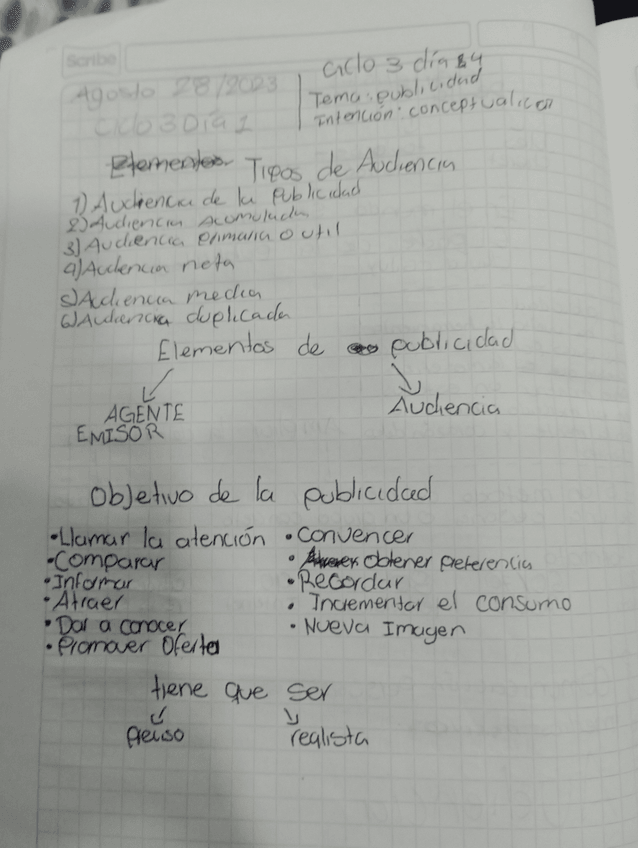 Scribe
Agosto 28/2023
Ciclo 3 Día 1
Ciclo 3 día 4
Tema: publicidad
Intención: conceptualizar
Elementos Tipos de Audiencia
1) Audiencia de la Publicidad
2) Audiencia acomulada
3) Audiencia primaria o util
4) Audiencia neta
5) Audiencia media
6) Audiencia duplicada
Elementos de publicidad
AGENTE
EMISOR
Audiencia
Objetivo de la publicidad
• Llamar la atención
• Comparar
• Informar
• Atraer
• Dar a conocer
• Promover Oferta
• Convencer
• obtener preferencia
• Recordar
• Incrementar el consumo
• Nueva Imagen
tiene que ser
preciso
realista